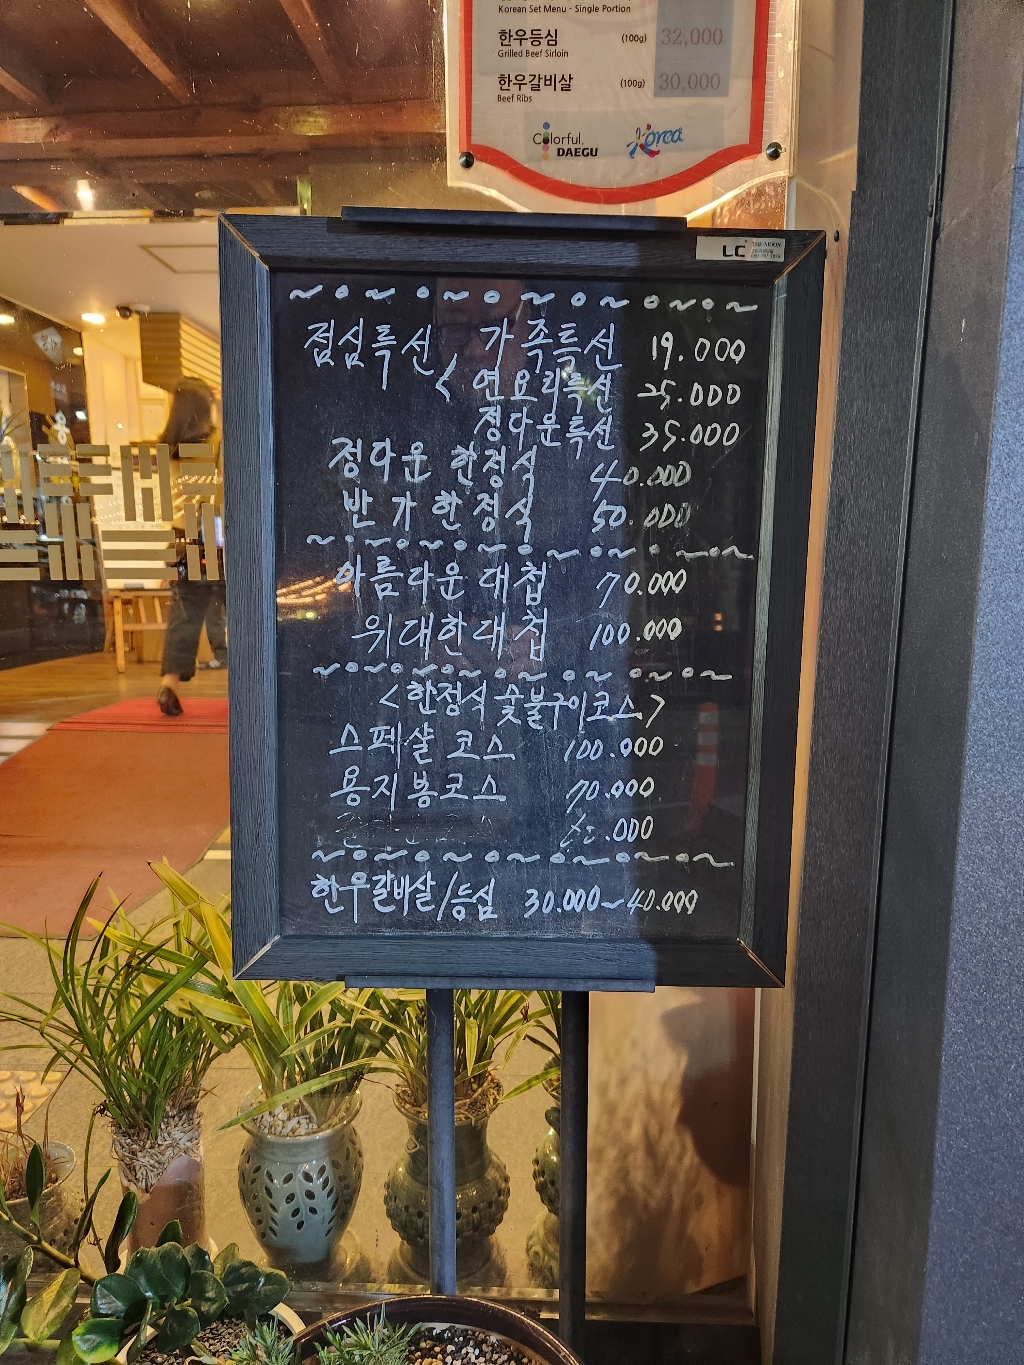 Korean Set Menu - Single Portion
한우등심 (100g) 32,000
Grilled Beef Sirloin
한우갈비살 (100g) 30,000
Beef Ribs
Colorful DAEGU Korea
LC
점심특선 < 가족특선 19.000
연요리특선 25.000
정다운특선 35.000
정다운 한정식 40.000
반가한정식 50.000
아름다운 대첩 70.000
위대한대첩 100.000
<한정식 숯불구이코스>
스페샬 코스 100.000
용지봉코스 70.000
.000
한우갈비살/등심 30.000~40.000